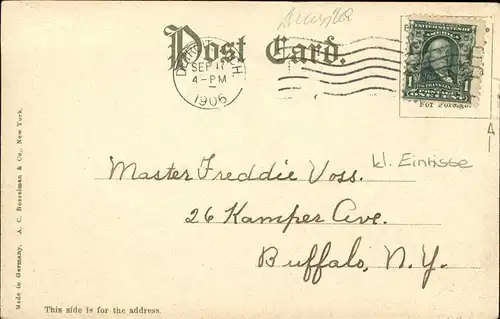 Post Card.
SEP 11
4-PM
1906
UNITED STATES OF
AMERICA
1
1
ONE CENT
For Foreign.
Master Freddie Voss.
kl. Einrisse
26 Kamper Ave.
Buffalo, N.Y.
Made in Germany. A. C. Bosselman & Co., New York.
This side is for the address.